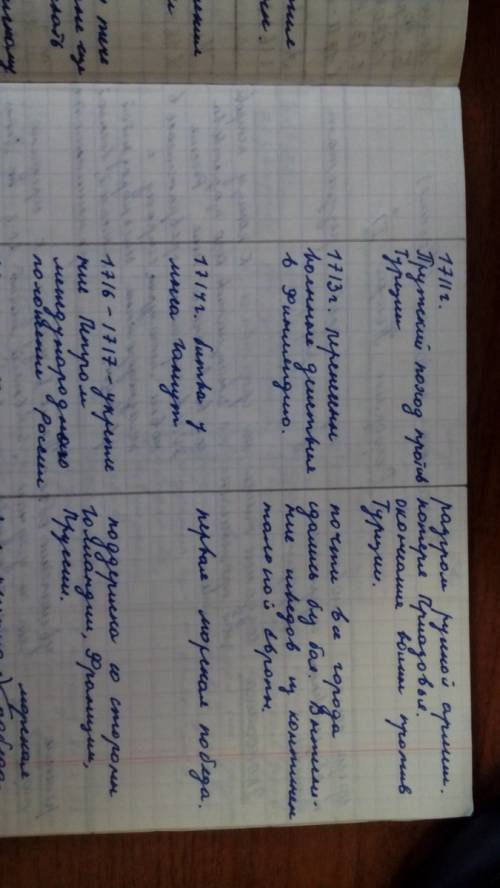 1711г.
Прутский поход против
Турции
разгром русской армии.
потеря Приазовья.
окончание войны против
Турции.
1713г. перенесены
военные действия
в Финляндию.
почти все города
сдались без боя. Вытесне-
ние шведов из континен
тальной Европы.
1714г. битва у
мыса Гангут
первая морская победа.
1716-1717-укрепле
ние Петром
международного
положения России
поддержка со стороны
Голландии, Франции,
Пруссии.
морская